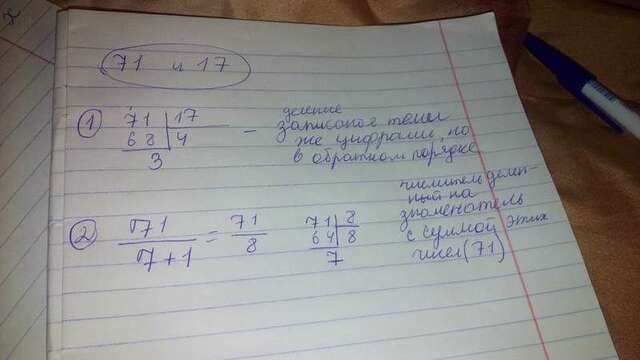 71 и 17
① 71 | 17
68 | 4
3
— деление
записаное теми
же цифрами, но
в обратном порядке
② 71 / 7+1 = 71 / 8
71 | 8
64 | 8
7
числитель делен-
ный на
знаменатель
с суммой этих
чисел (71)